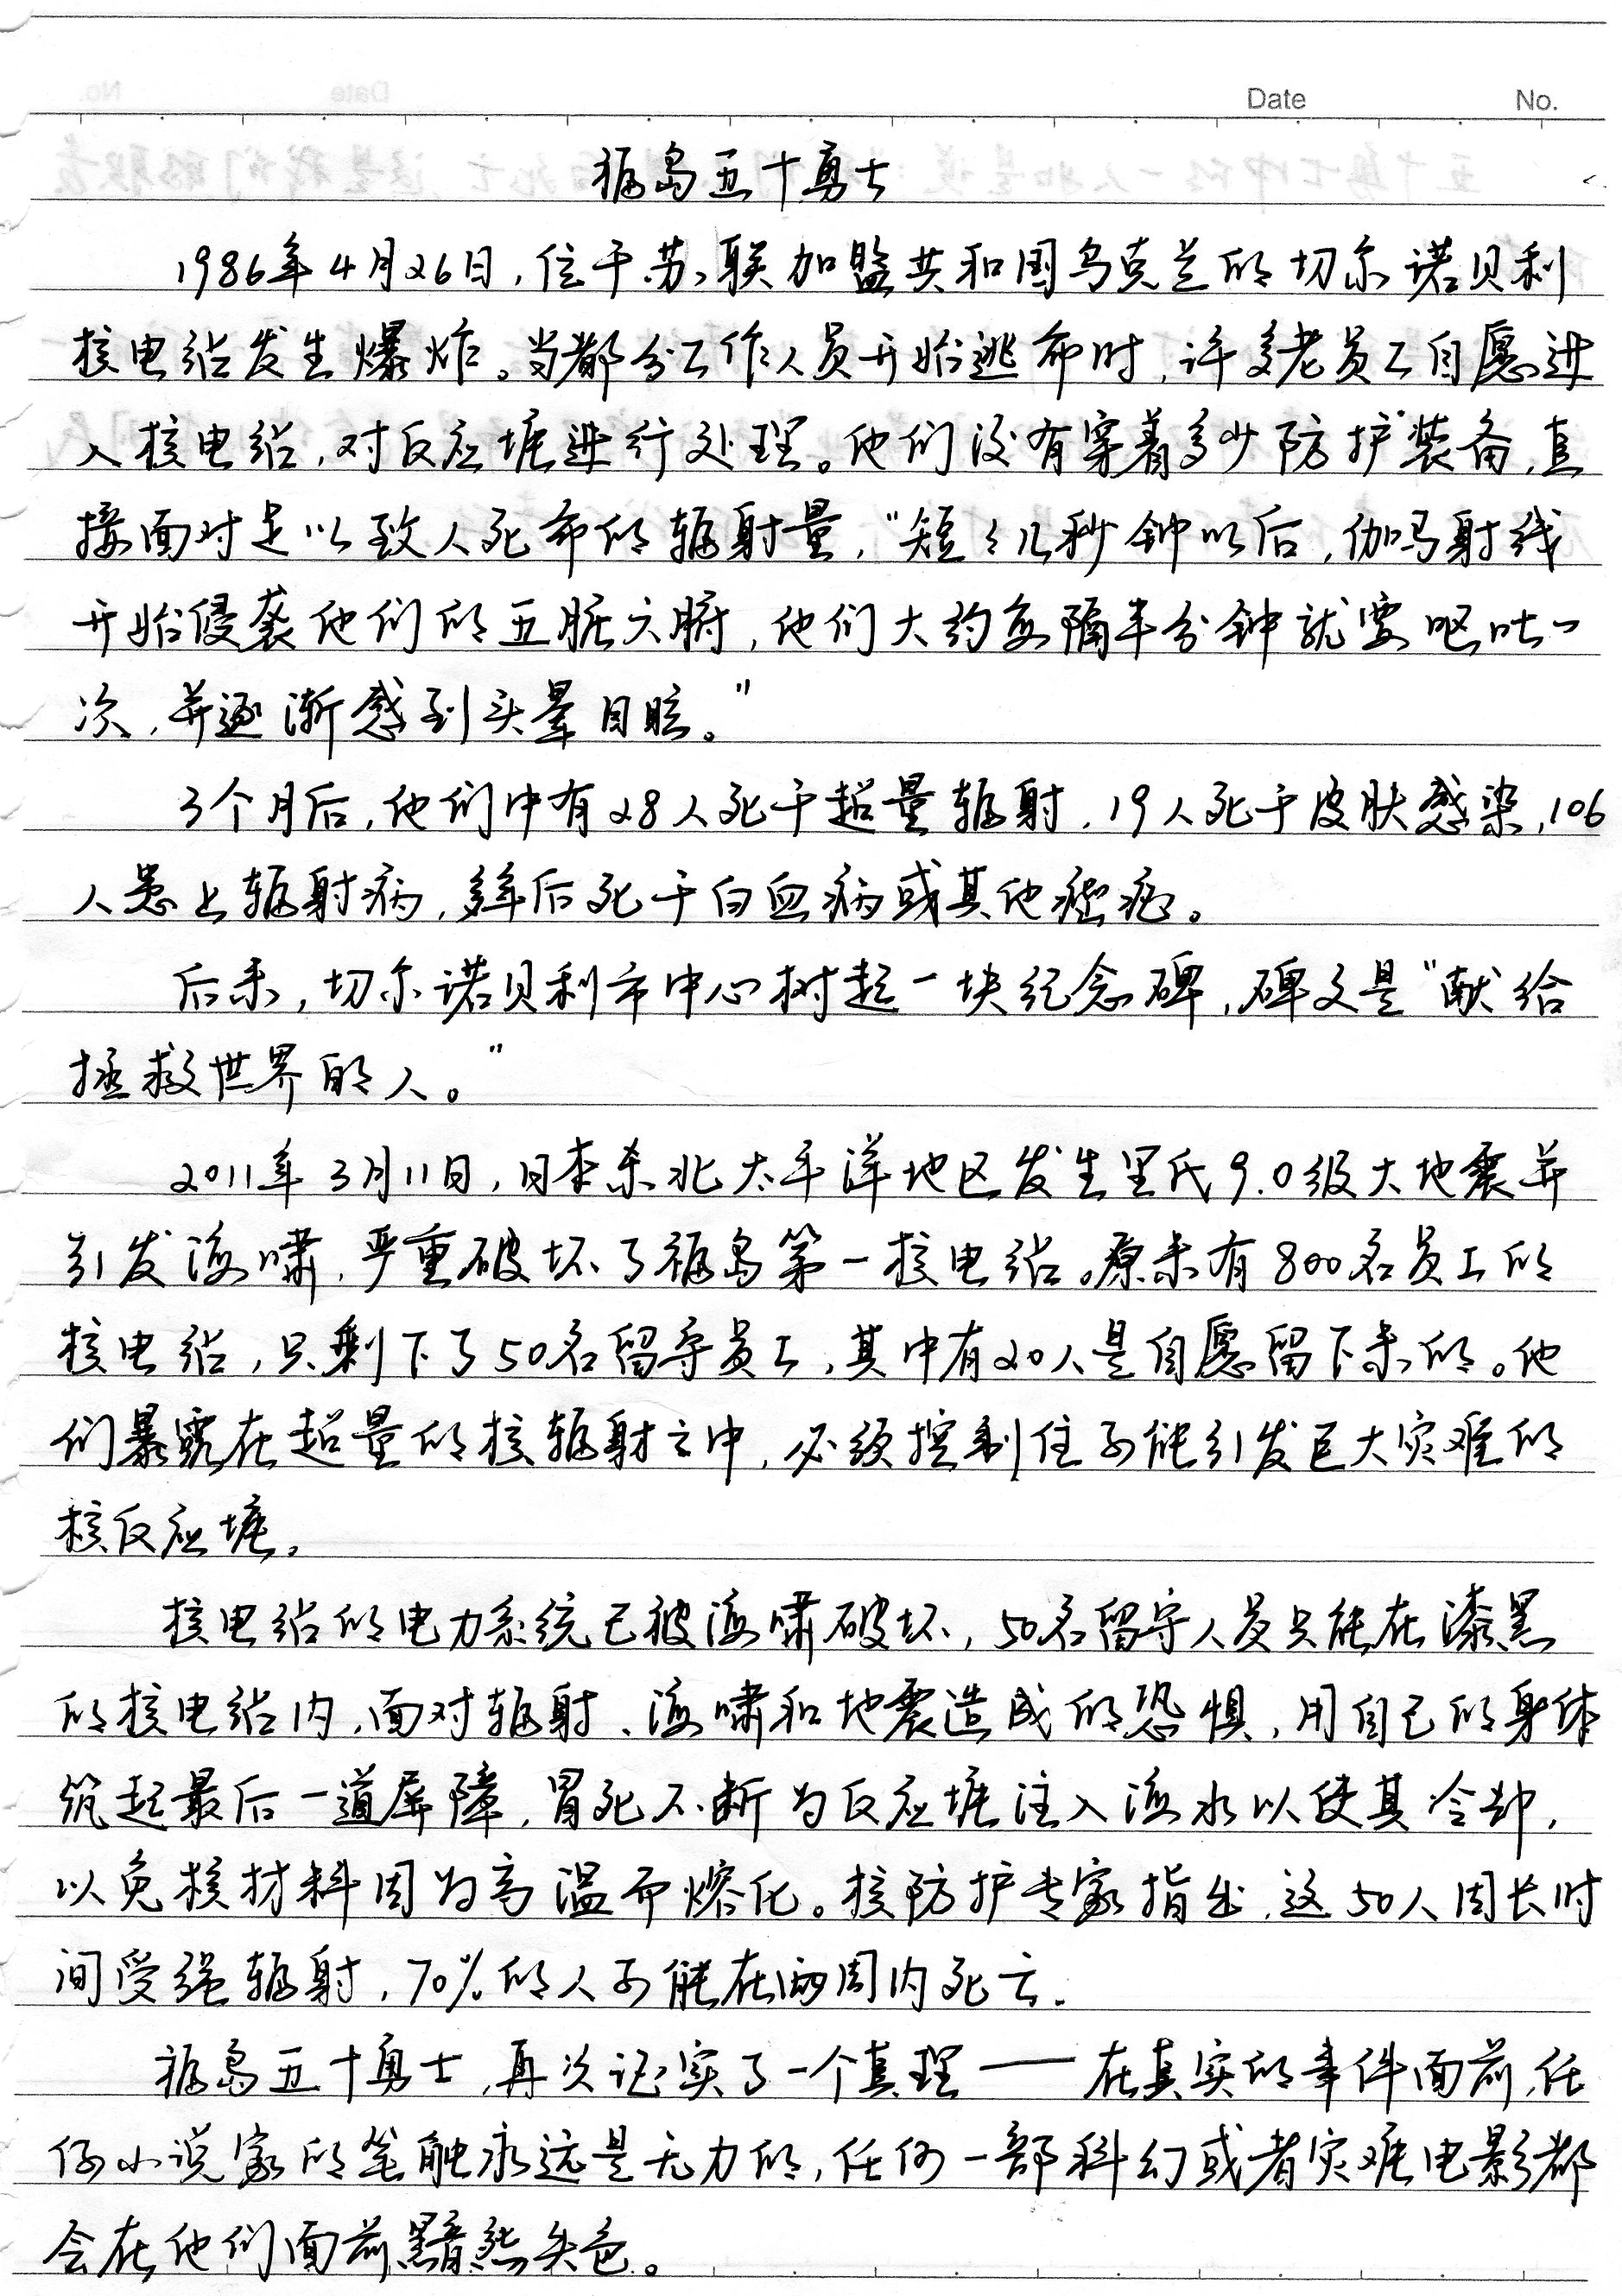 Date No.
福岛五十勇士
1986年4月26日,位于苏联加盟共和国乌克兰的切尔诺贝利
核电站发生爆炸。当部分工作人员开始逃命时,许多老员工自愿进
入核电站,对反应堆进行处理。他们没有穿着多少防护装备,直
接面对足以致人死命的辐射量,“短短几秒钟以后,伽马射线
开始侵袭他们的五脏六腑,他们大约每隔半分钟就要呕吐一
次,并逐渐感到头晕目眩。”
3个月后,他们中有28人死于超量辐射,19人死于皮肤感染,106
人患上辐射病,多年后死于白血病或其他癌症。
后来,切尔诺贝利市中心树起一块纪念碑,碑文是“献给
拯救世界的人。”
2011年3月11日,日本东北太平洋地区发生里氏9.0级大地震并
引发海啸,严重破坏了福岛第一核电站。原来有800名员工的
核电站,只剩下了50名留守员工,其中有20人是自愿留下来的。他
们暴露在超量的核辐射之中,必须控制住可能引发巨大灾难的
核反应堆。
核电站的电力系统已被海啸破坏,50名留守人员只能在漆黑
的核电站内,面对辐射、海啸和地震造成的恐惧,用自己的身体
筑起最后一道屏障,冒死不断为反应堆注入海水以使其冷却,
以免核材料因为高温而熔化。核防护专家指出,这50人因长时
间受强辐射,70%的人可能在两周内死亡.
福岛五十勇士,再次证实了一个真理——在真实的事件面前,任
何小说家的笔触永远是无力的,任何一部科幻或者灾难电影都
会在他们面前黯然失色。